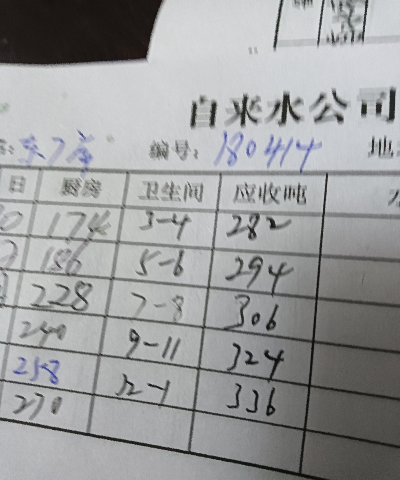 自来水公司
东7库 编号: 180414 地
日 厨房 卫生间 应收吨
174 3-4 282
186 5-6 294
228 7-8 306
240 9-11 324
258 12-1 336
270